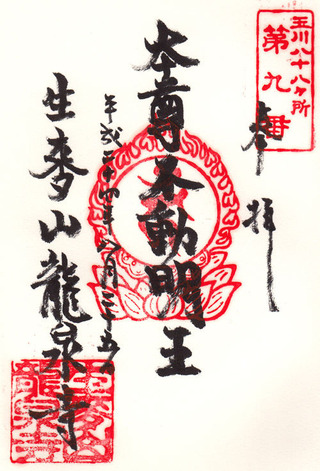 玉川八十八ヶ所
第九番
奉拝
本尊不動明王
平成二十四年八月二十五日
生麥山龍泉寺
生麥山
龍泉寺